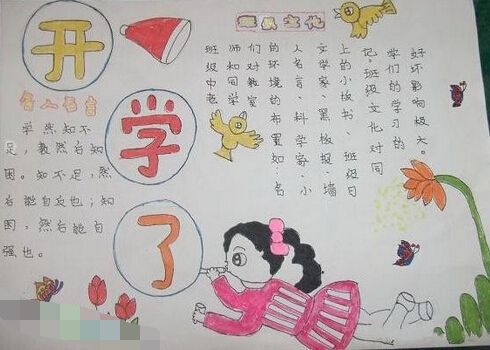 开
学
了
班级文化
名人名言
学然知不
足，教然后知
困。知不足，然
后能自反也；知
困，然后能自
强也。
班级中老
师知同学
们对教室
的环境的布置如:名
人名言、科学家、小
文学家、黑板报、墙
上的小板书、班级日
记。班级文化对同
学们的学习的
好坏影响极大。